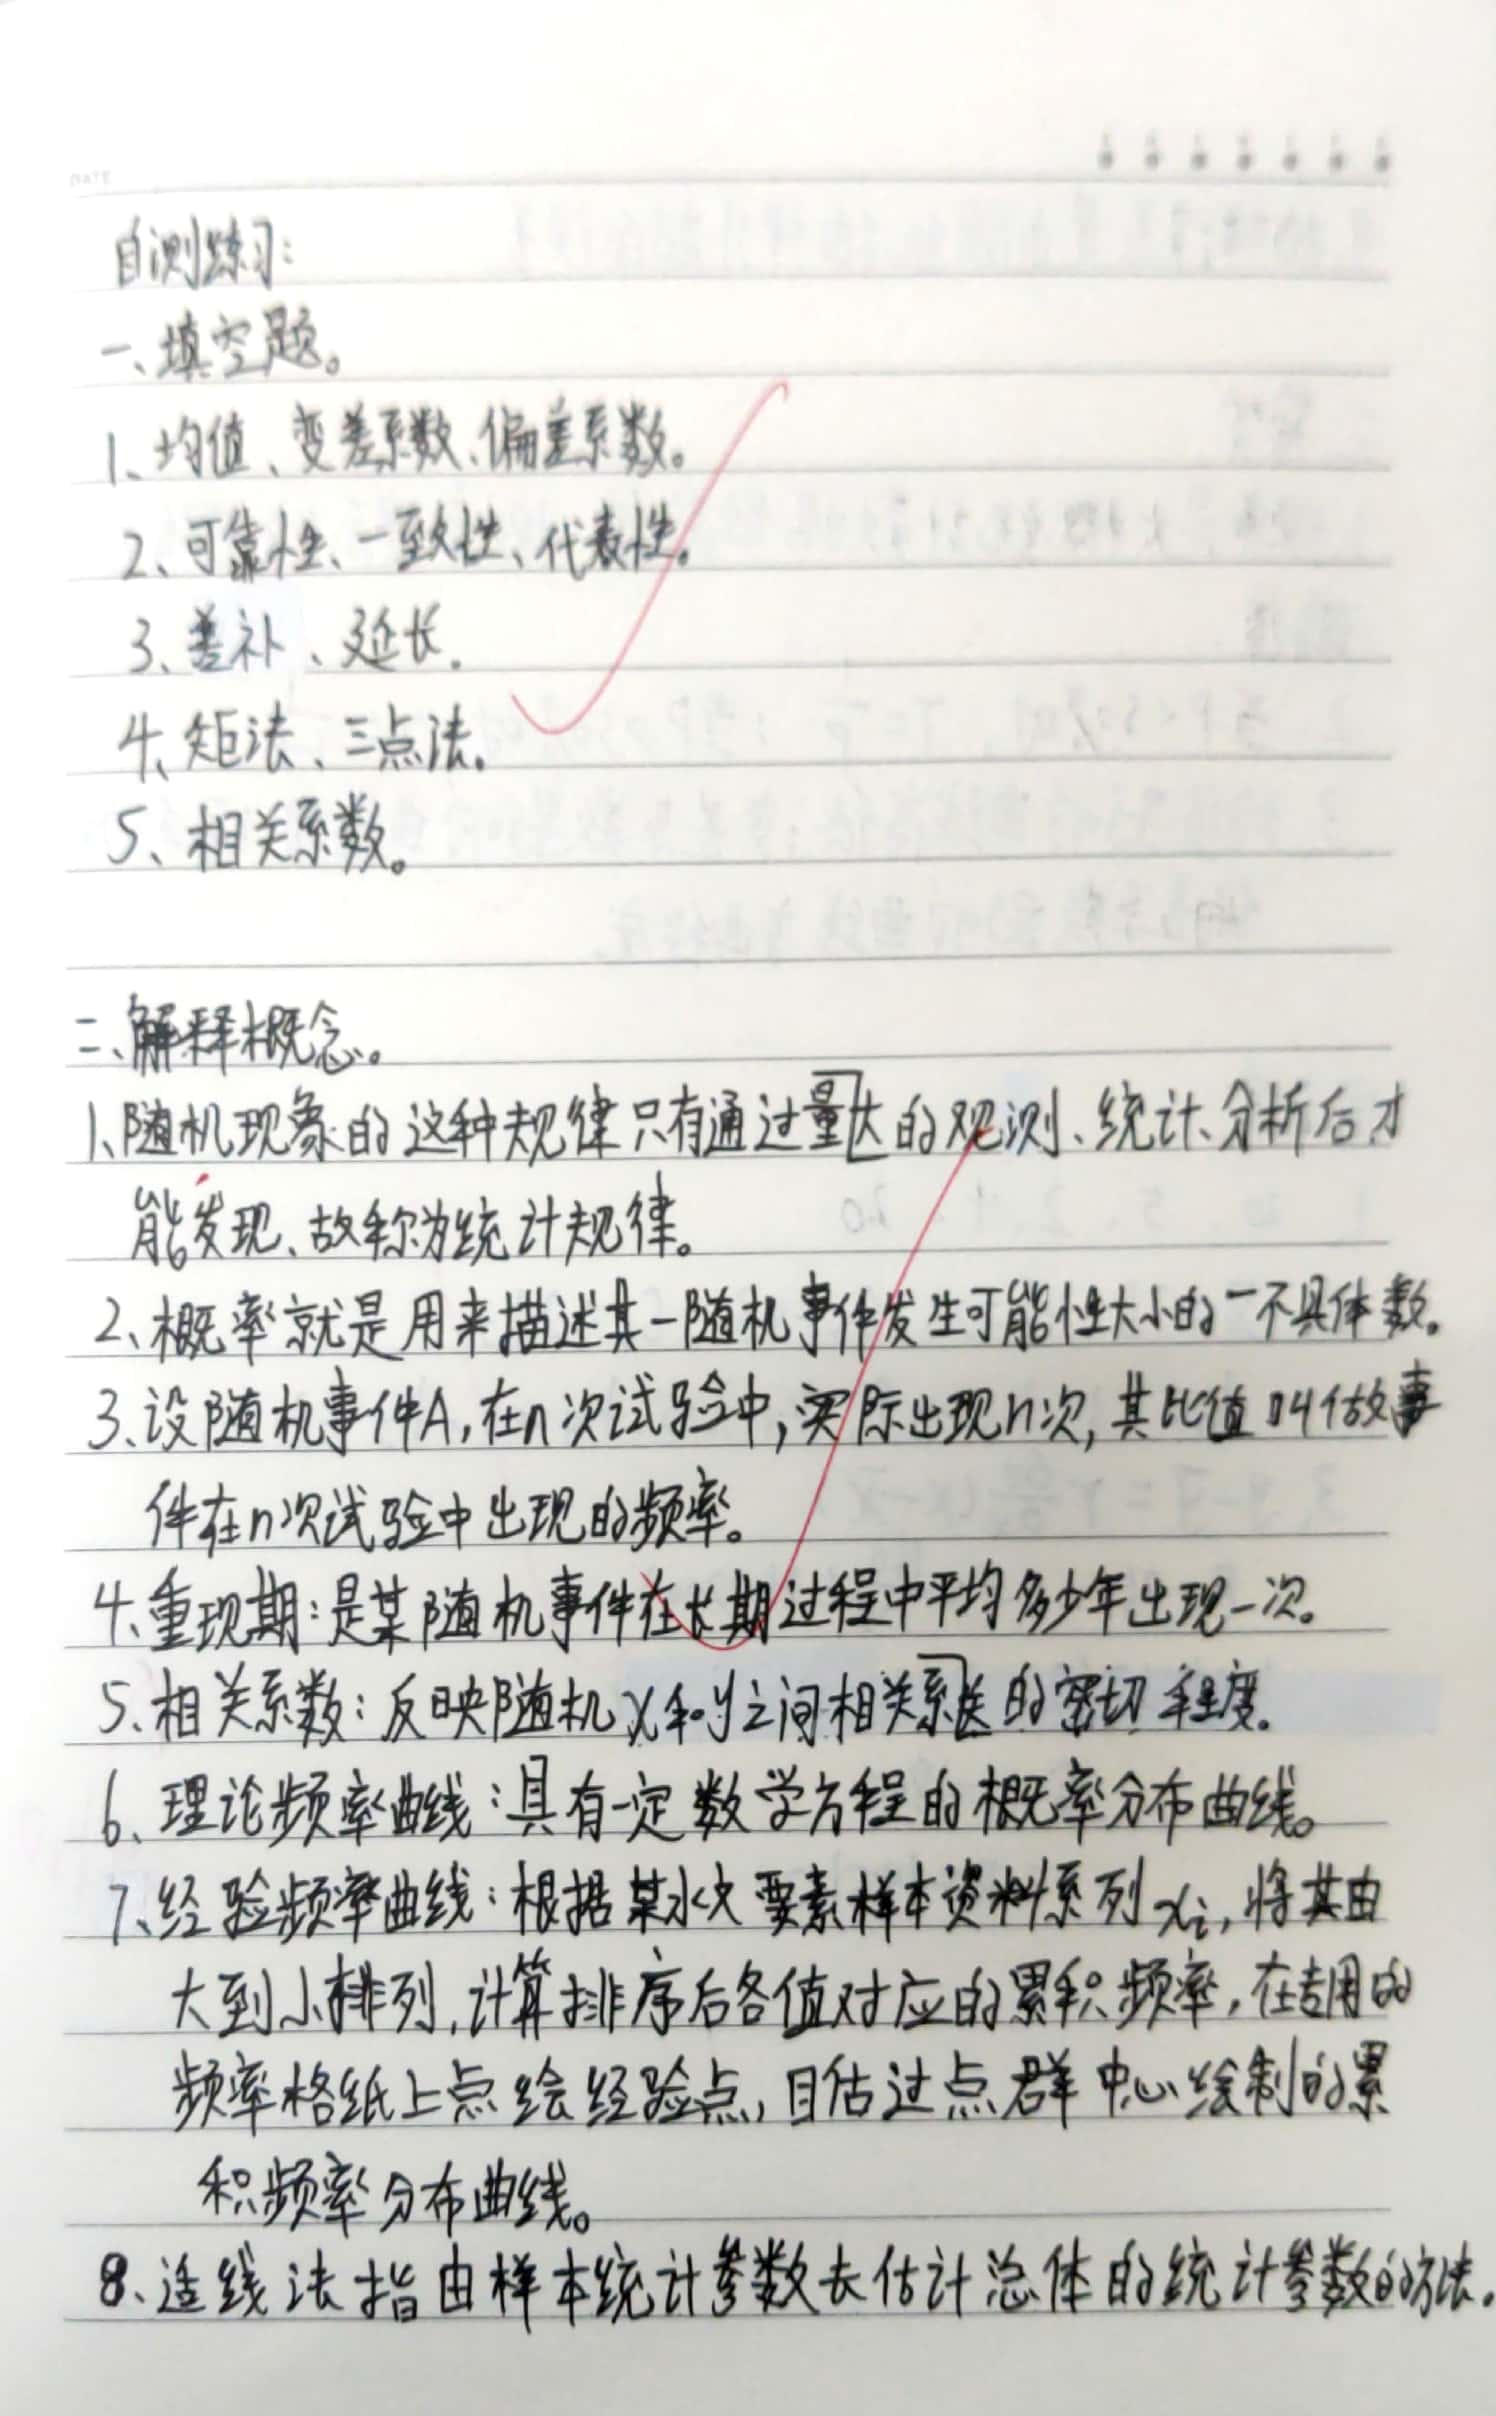 自测练习:
一、填空题。
1、均值、变差系数、偏差系数。
2、可靠性、一致性、代表性。
3、差补、延长.
4、矩法、三点法。
5、相关系数。
二、解释概念。
1、随机现象的这种规律只有通过量大的观测、统计、分析后才
能发现、故称为统计规律。
2、概率就是用来描述其一随机事件发生可能性大小的一不具体数。
3、设随机事件A,在n次试验中,实际出现n次,其比值叫做事
件在n次试验中出现的频率。
4、重现期:是某随机事件在长期过程中平均多少年出现一次。
5、相关系数:反映随机x和y之间相关系的密切程度。
6、理论频率曲线:具有一定数学方程的概率分布曲线。
7、经验频率曲线:根据某水文要素样本资料系列xi,将其由
大到小排列,计算排序后各值对应的累积频率,在专用的
频率格纸上点绘经验点,目估过点群中心绘制的累
积频率分布曲线。
8、适线法指由样本统计参数去估计总体的统计参数的方法。